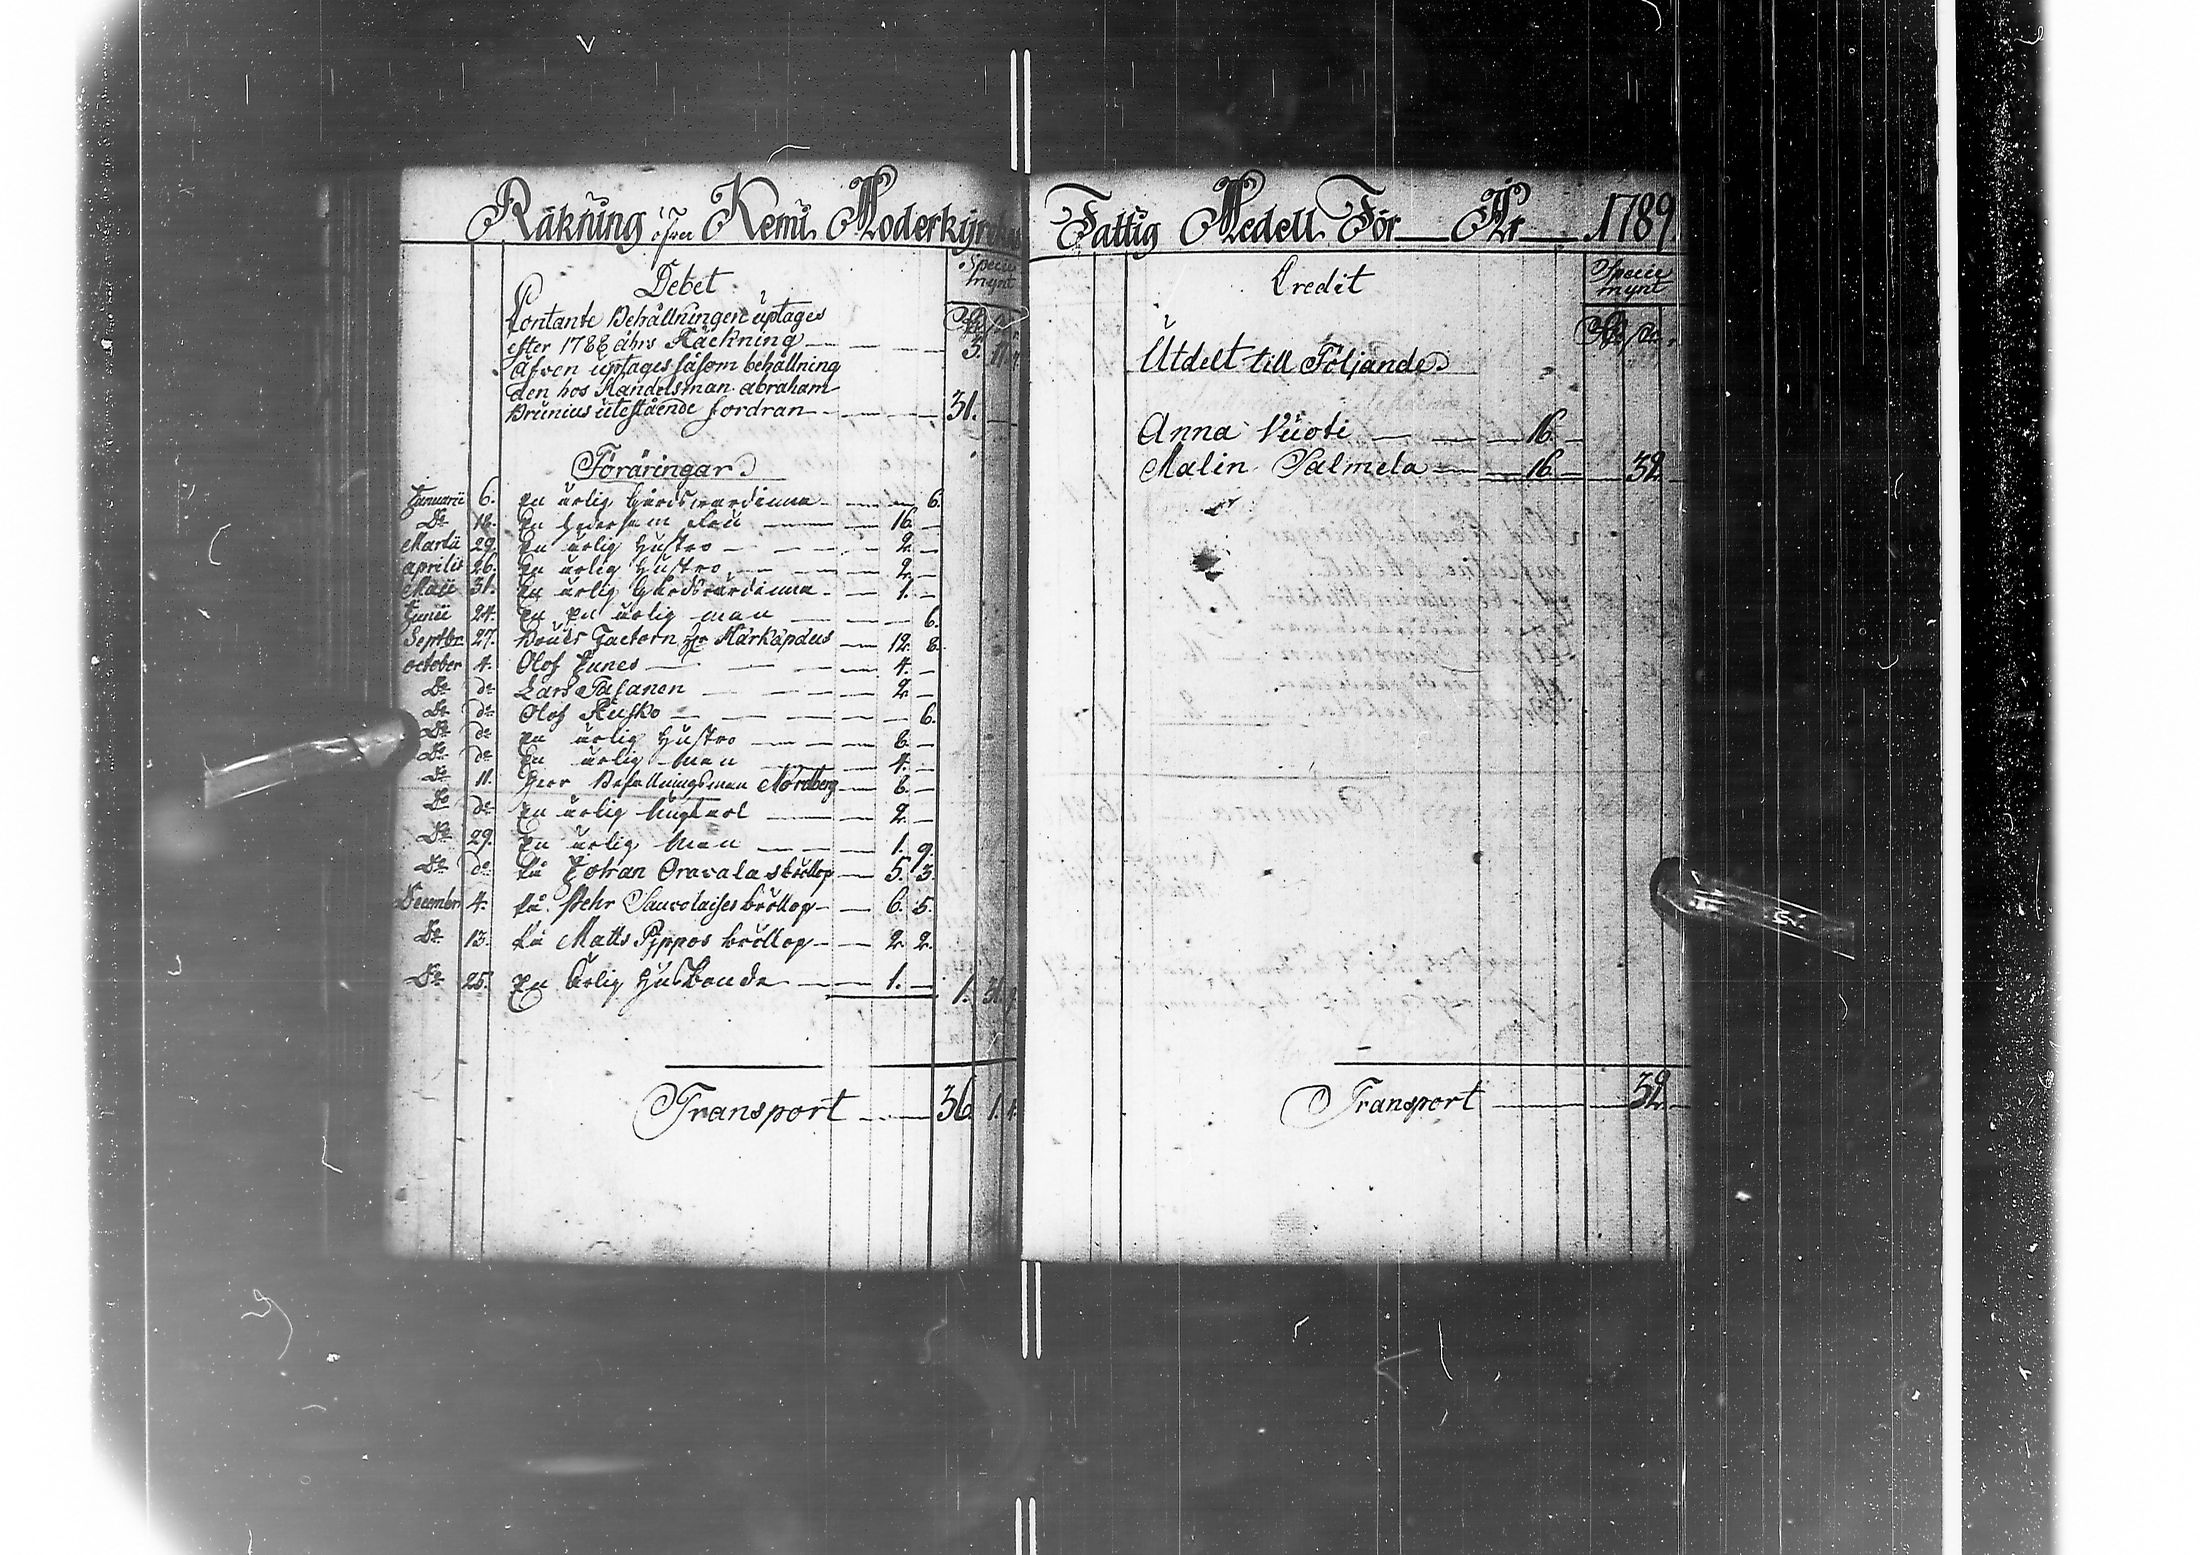 Räkning öfver Kemi Moderkyrkas
Debet
Specie
mynt
Contante Behållningen uptages
efter 1788 åhrs Räckning 3. 11.
äfven uptages såsom behållning
den hos Handelsman abraham
Brunius utestående fordran 31.
Föräringar
Januarii 6. En ärlig Gårdsvärdinna 6.
Do 18. En 16.
Martii 29. En ärlig Hustro 2
aprilis 26. En ärlig Hustro 2
Maii 31. En ärlig Gårdsvärdinna 1.
Junii 24. En en ärlig man 6.
Septbr 27. Bruks Factorn Hr 12 8.
october 4. Olof Junes 4.
Do do Lars 2
Do do Olof Rusko 6.
Do do En ärlig Hustro 6
Do do En ärlig Man 4.
Do 11. Herr Befallningsman Nordberg 6
Do do En ärlig 2
Do 29. En ärlig Man 1. 9.
Do do På Johan Oravalas bröllop 5. 3.
Decembr 4. På Pehr bröllop 6. 5.
Do 13. På Matts Pippos bröllop 2 2.
Do 25. En Ärlig Husbonde 1. 1. 31. 9
Transport 36. 1.
Fattig Medell För År 1789.
Credit
Specie
mynt
Utdelt till Följande
Anna Vuoti 16
Malin Salmela 16 32
Transport 32